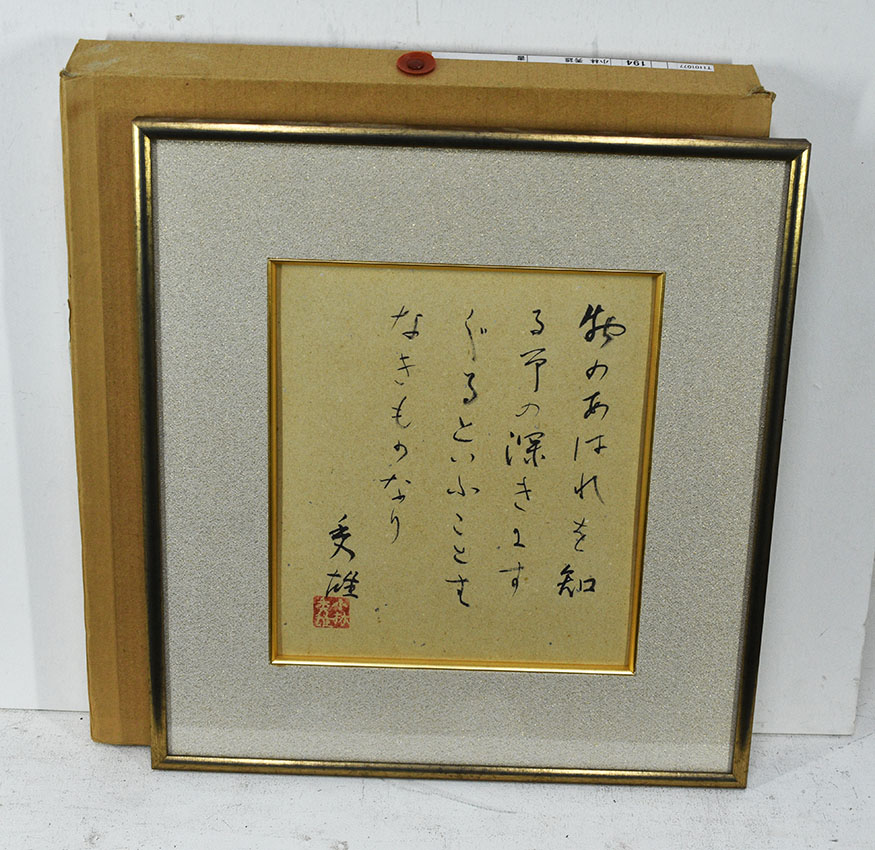 物のあはれを知
る事の深きにす
ぐるといふことも
なきものなり
秀雄
小林
秀雄
T1101077
194
小林 秀雄
書